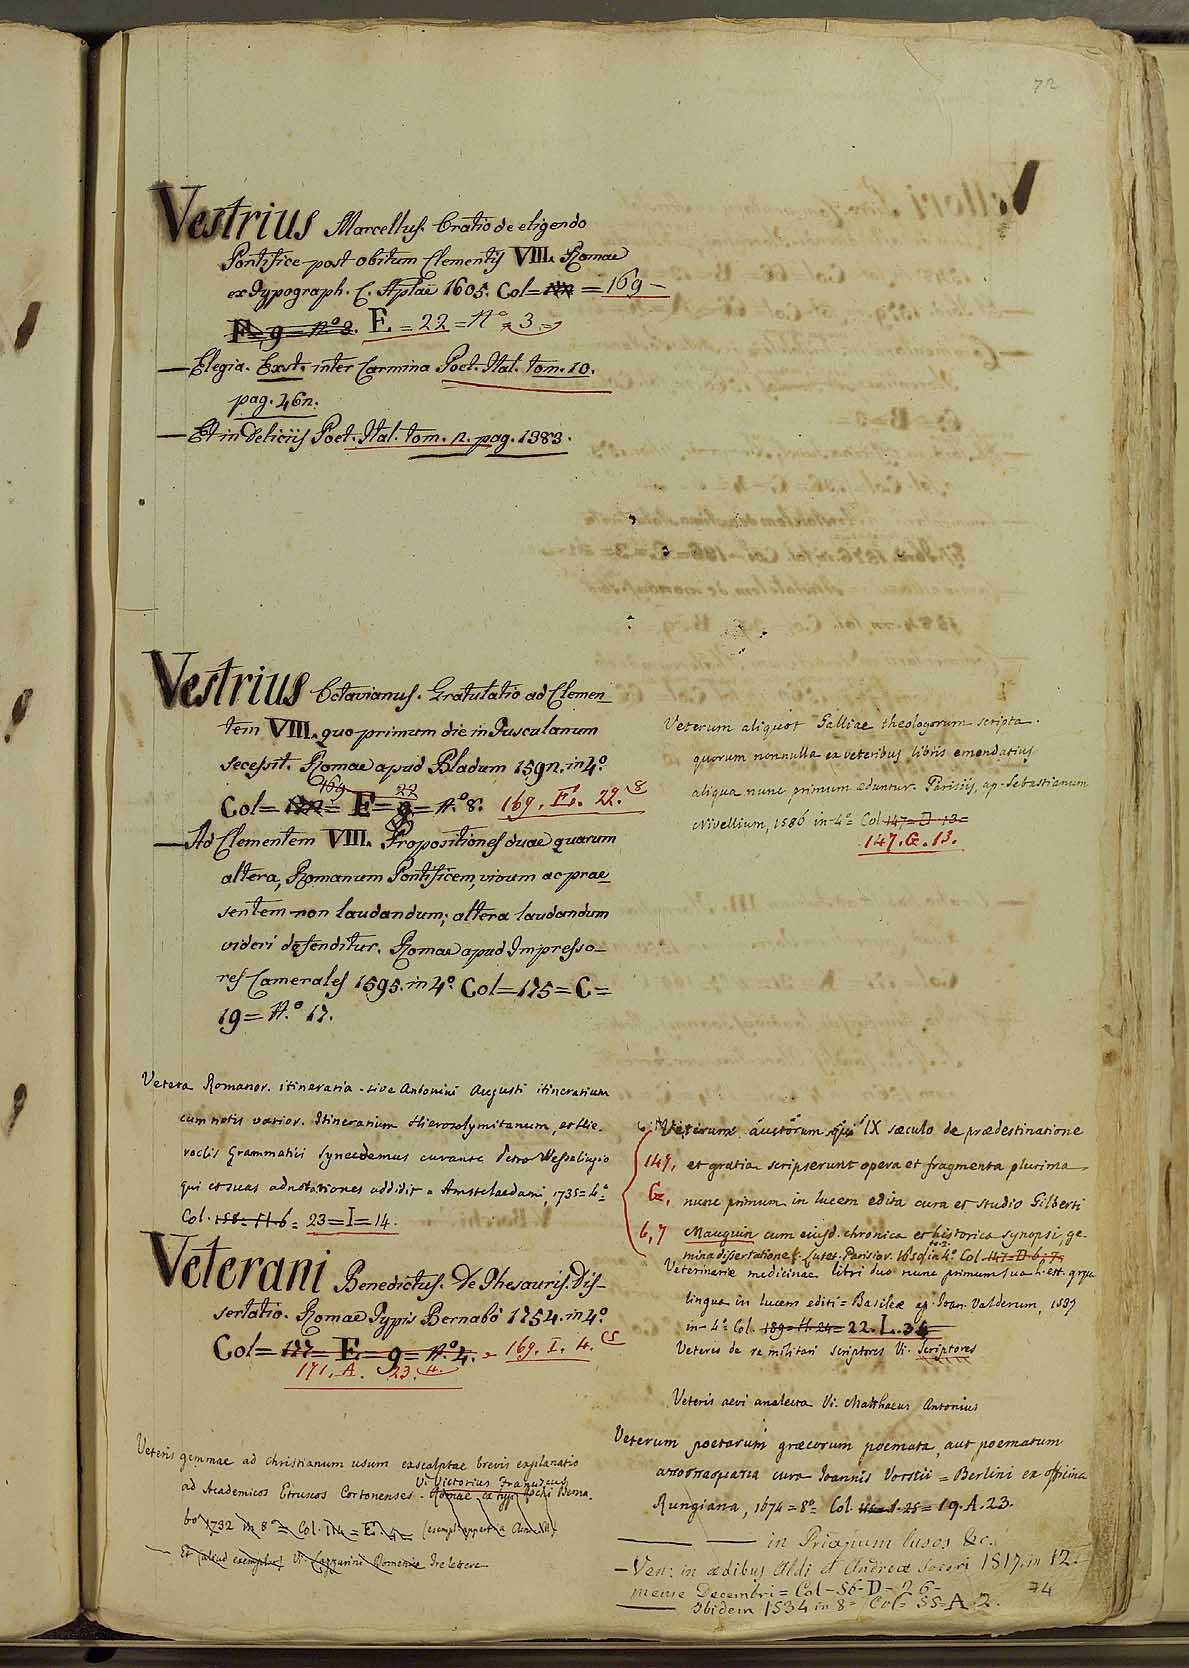 72
Vestrius Marcellus. Oratio de eligendo
Pontifice post obitum Clementis VIII. Romae
ex Typograph. C. Aplae 1605. Col= = 169 -
E= 9= N.º 8. E = 22 = N.º 3 =
— Elegia. Exst. inter Carmina Poet. Ital. tom. 10.
pag. 462.
— Et in Deliciis Poet. Ital. tom. 2. pag. 1383.
Vestrius Octavianus. Gratulatio ad Clemen_
tem VIII. quo primum die in Tusculanum
secessit. Romae apud Bladum 1592. in 4.º
169 22
Col= = E= 9= N.º 8. 169. E. 22. 8
— Ad Clementem VIII. Propositiones duae quarum
altera, Romanum Pontificem, vivum ac prae_
sentem non laudandum; altera laudandum
videri defenditur. Romae apud Impresso_
res Camerales 1595. in 4.º Col=175=C=
19= N.º 17.
Vetera Romanor. itineraria. sive Antonini Augusti itinerarium
cum notis varior. Itinerarium Hierosolymitanum, et Hie_
roclis Grammatici Synecdemus curante Petro Wesselingio
qui et suas adnotationes addidit = Amstelaedami, 1735= 4.º
Col. 158= H. 6= 23=I=14.
Veterani Benedictus. De Thesauris. Dis_
sertatio. Romae Typis Bernabò 1754. in 4.º
Col= 177= E= 9= N.º 4. = 169. I. 4.
171. A. 23. 4.
Veteris gemmae ad christianum usum exscalptae brevis explanatio
ad Academicos Etruscos Cortonenses. Vi Victorius Franciscus
Romae ex typ. Rochi Berna_
bò 1732 in 8º= Col. 114= E.
— Et aliud exemplar. Vi. Romanae
Veterum aliquot Galliae theologorum scripta.
quorum nonnulla ex veteribus libris emendatius
aliqua nunc primum eduntur. Parisiis, ap. Sebastianum
Nivellium, 1586 in 4º Col 147= D 13=
147. G. 13.
C. Veterum auctorum qui IX saeculo de praedestinatione
147, et gratia scripserunt opera et fragmenta plurima
G, nunc primum in lucem edita cura et studio Gilberti
6, 7 Mauguin cum eiusd. chronica et historica synopsi, ge_
mina dissertatione &. Lutet. Parisior. 1650 in 4º Col 147-D-6, 7.
Veterinariae medicinae libri duo nunc primum sua h. est graeca
lingua in lucem editi= Basileae ap. Ioan. Valderum, 1537
in 4.º Col. 189= H. 24= 22. L. 34
Veteris de re militari scriptores Vi. Scriptores
Veteris aevi analecta Vi. Matthaeus Antonius
Veterum poetarum graecorum poemata, aut poematum
cura Ioannis Vorstii = Berlini ex officina
Rungiana, 1674= 8º Col. = 19. A. 23.
— — in Priapum lusos &c.
— Ven: in aedibus Aldi et Andreae Soceri 1517. in 12.
mense Decembri= Col-56-D-26-
74
— Ibidem 1534 in 8º Col= 55=A.2.